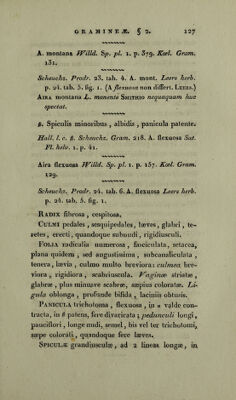 GRAMINEÆ. § 2. 127
A. montana Willd. Sp. pl. 1. p. 379. Kœl. Gram.
131.
Scheuchz. Prodr. 23. tab. 4. A. mont. Leers herb.
p. 24. tab. 5. fig. 1. (A flexuosa non differt. Leers.)
Aira montana L. monente Smithio nequaquam huc
spectat.
β. Spiculis minoribus, albidis, panicula patente.
Hall. l. c. β. Scheuchz. Gram. 218. A. flexuosa Sut.
Fl. helv. 1. p. 41.
Aira flexuosa Willd. Sp. pl. 1. p. 157. Kœl. Gram.
129.
Scheuchz. Prodr. 24. tab. 6. A. flexuosa Leers herb.
p. 24. tab. 5. fig. 1.
Radix fibrosa, cespitosa.
Culmi pedales, sesquipedales, læves, glabri, te-
retes, erecti, quandoque subnudi, rigidiusculi.
Folia radicalia numerosa, fasciculata, setacea,
plana quidem, sed angustissima, subcanaliculata,
tenera, lævia, culmo multo breviora: culmea bre-
viora, rigidiora, scabriuscula. Vaginæ striatæ,
glabræ, plus minusve scabræ, sæpius coloratæ. Li-
gula oblonga, profunde bifida, laciniis obtusis.
Panicula trichotoma, flexuosa, in α valde con-
tracta, in β patens, fere divaricata; pedunculi longi,
pauciflori, longe nudi, semel, bis vel ter trichotomi,
sæpe colorati, quandoque fere læves.
Spiculæ grandiusculæ, ad 2 lineas longæ, in